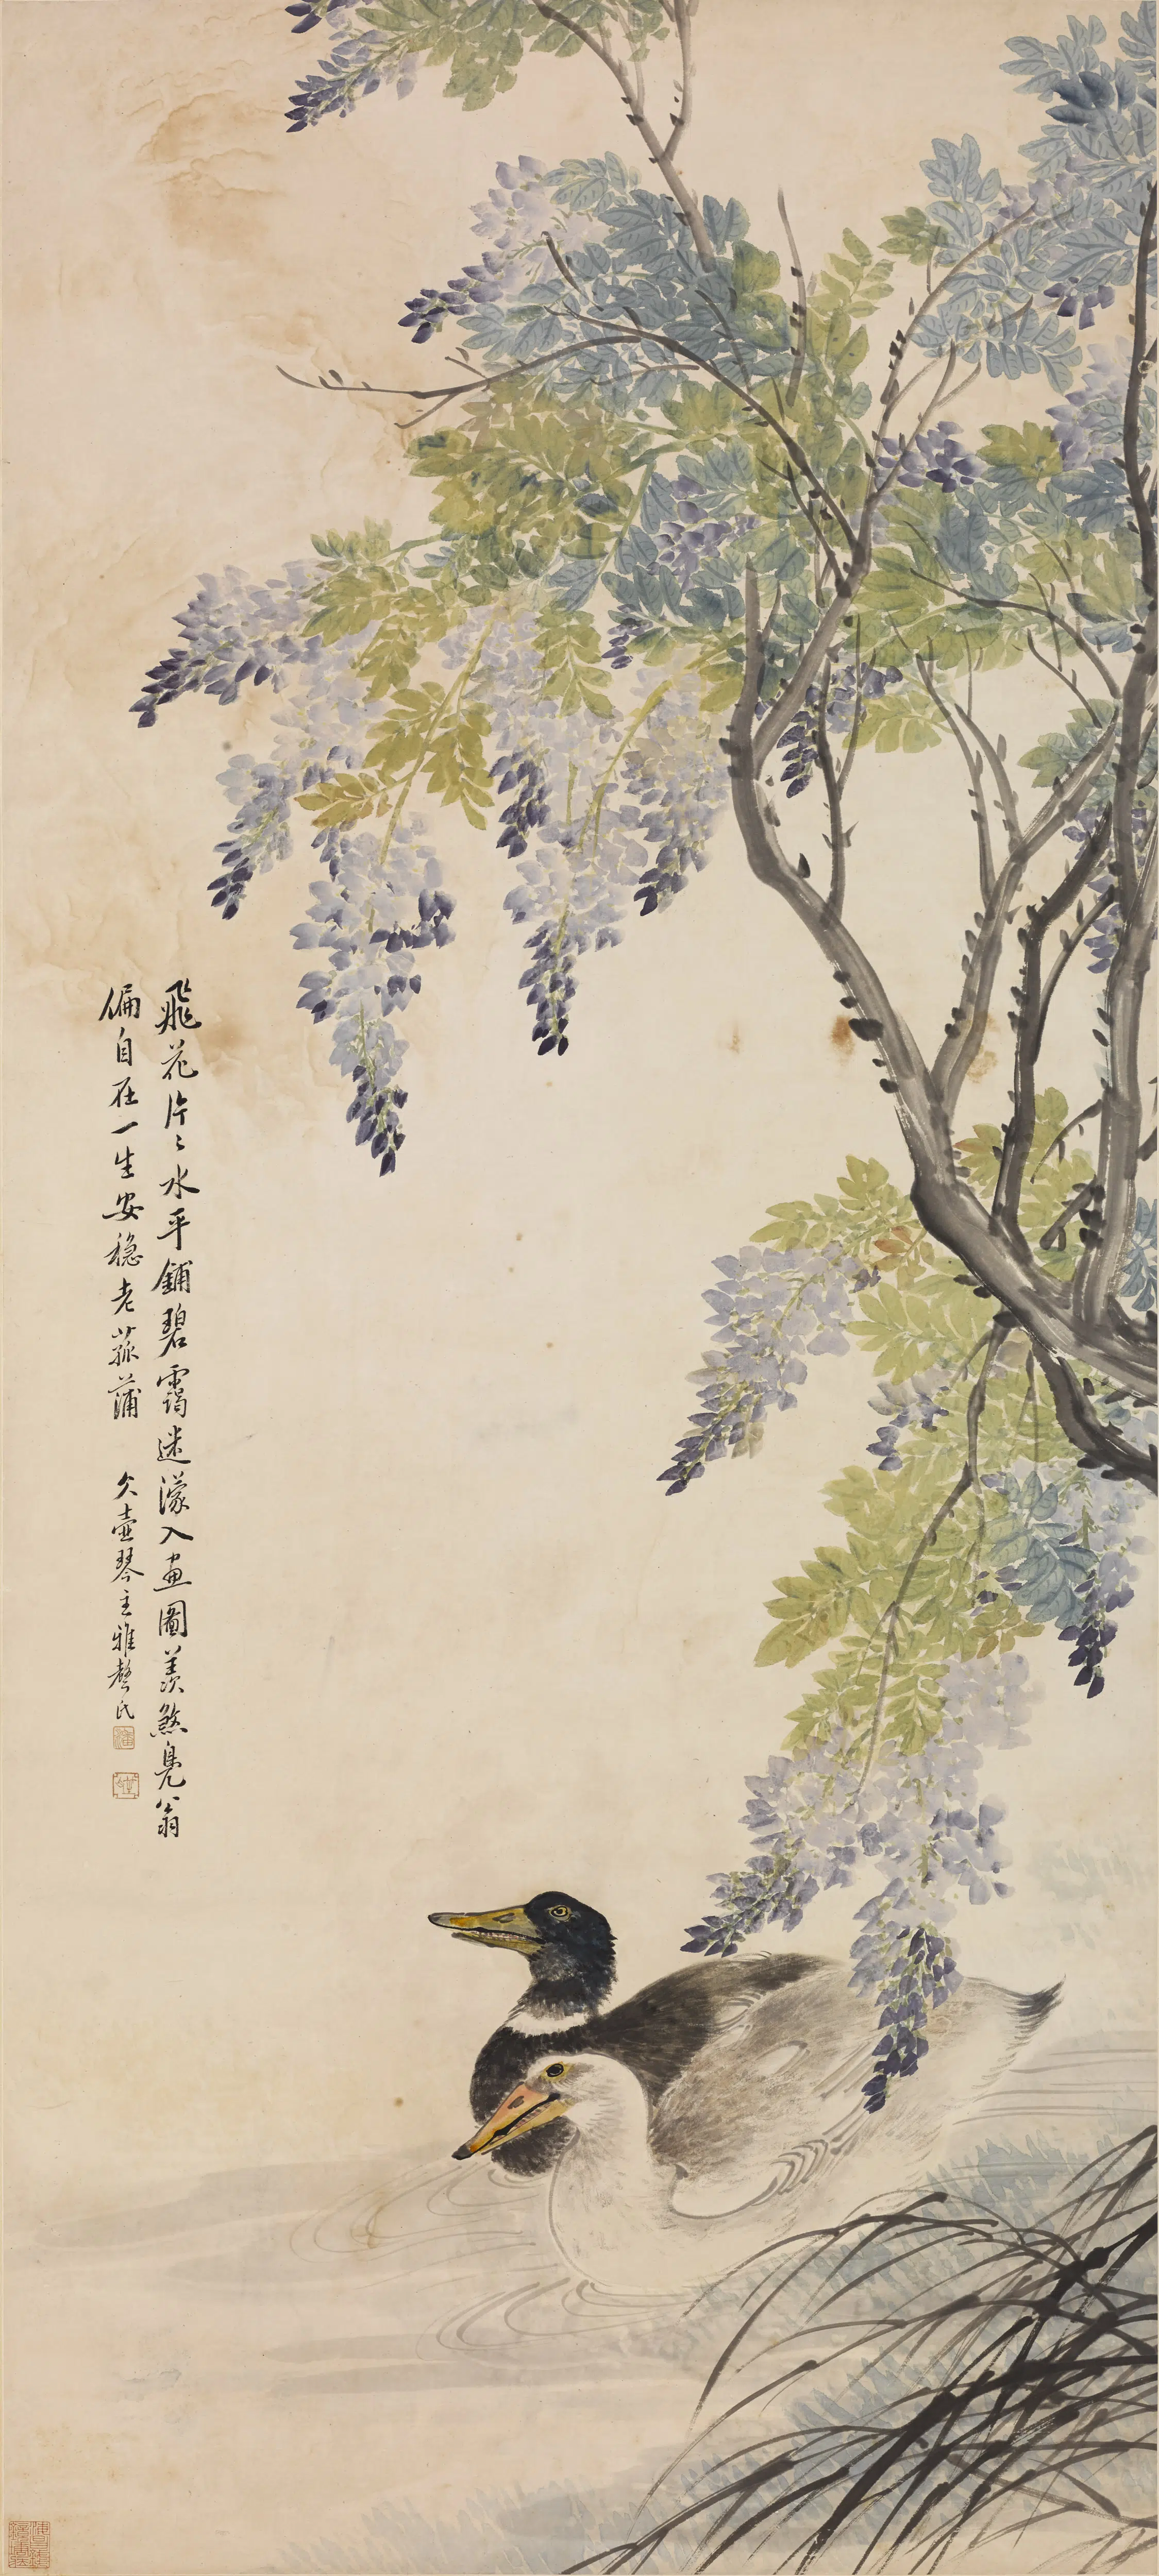 飛花片々水平鋪碧靄迷濛入畫圖羨煞鳧翁
偏自在一生安穩老菰蒲　久壺琴主雅聲氏
潘